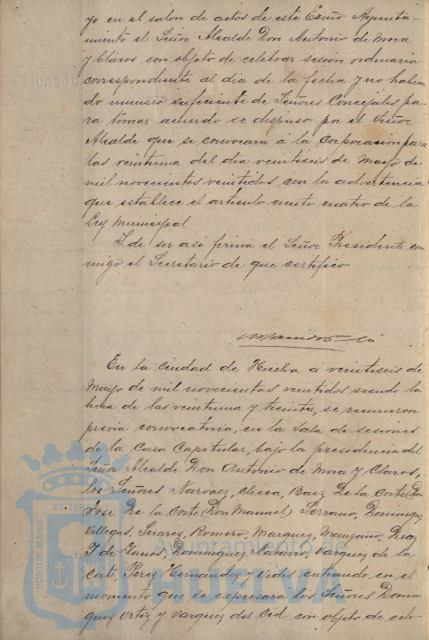 yo en el salon de actos de este Excmo Ayunta-
miento el Señor Alcalde Don Antonio de Mora
y Claros con objeto de celebrar sesion ordinaria
correspondiente al dia de la fecha y no habien
do numero suficiente de Señores Concejales pa-
ra tomar acuerdo se dispuso por el Señor
Alcalde que se convocara á la Corporacion para
las veintiuna del dia veintiseis de Mayo de
mil novecientos veintidos con la advertencia
que establece el articulo ciento cuatro de la
Ley Municipal
Y de ser asi firma el Señor Presidente con
migo el Secretario de que certifico
En la Ciudad de Huelva á veintiseis de
Mayo de mil novecientos veintidos siendo la
hora de las veintiuna y treinta, se reunieron
previa convocatoria, en la Sala de sesiones
de la Casa Capitular, bajo la presidencia del
Señor Alcalde Don Antonio de Mora y Claros,
los Señores Narvaez, Checa, Baez De la Corte (Don
Jose De la Corte (Don Manuel) Serrano, Dominguez
Villegas, Suarez, Romero, Marquez, Manzano, Diaz
F. de Llanos, Dominguez Naranjo Vazquez de la
Corte Perez Hernandez y Vides entrando en el
momento que se expresara los Señores Domin
guez Ortiz y Vazquez del Cid con objeto de cele
PORTUS MARIS
ET TERRAE
Ayuntamiento de